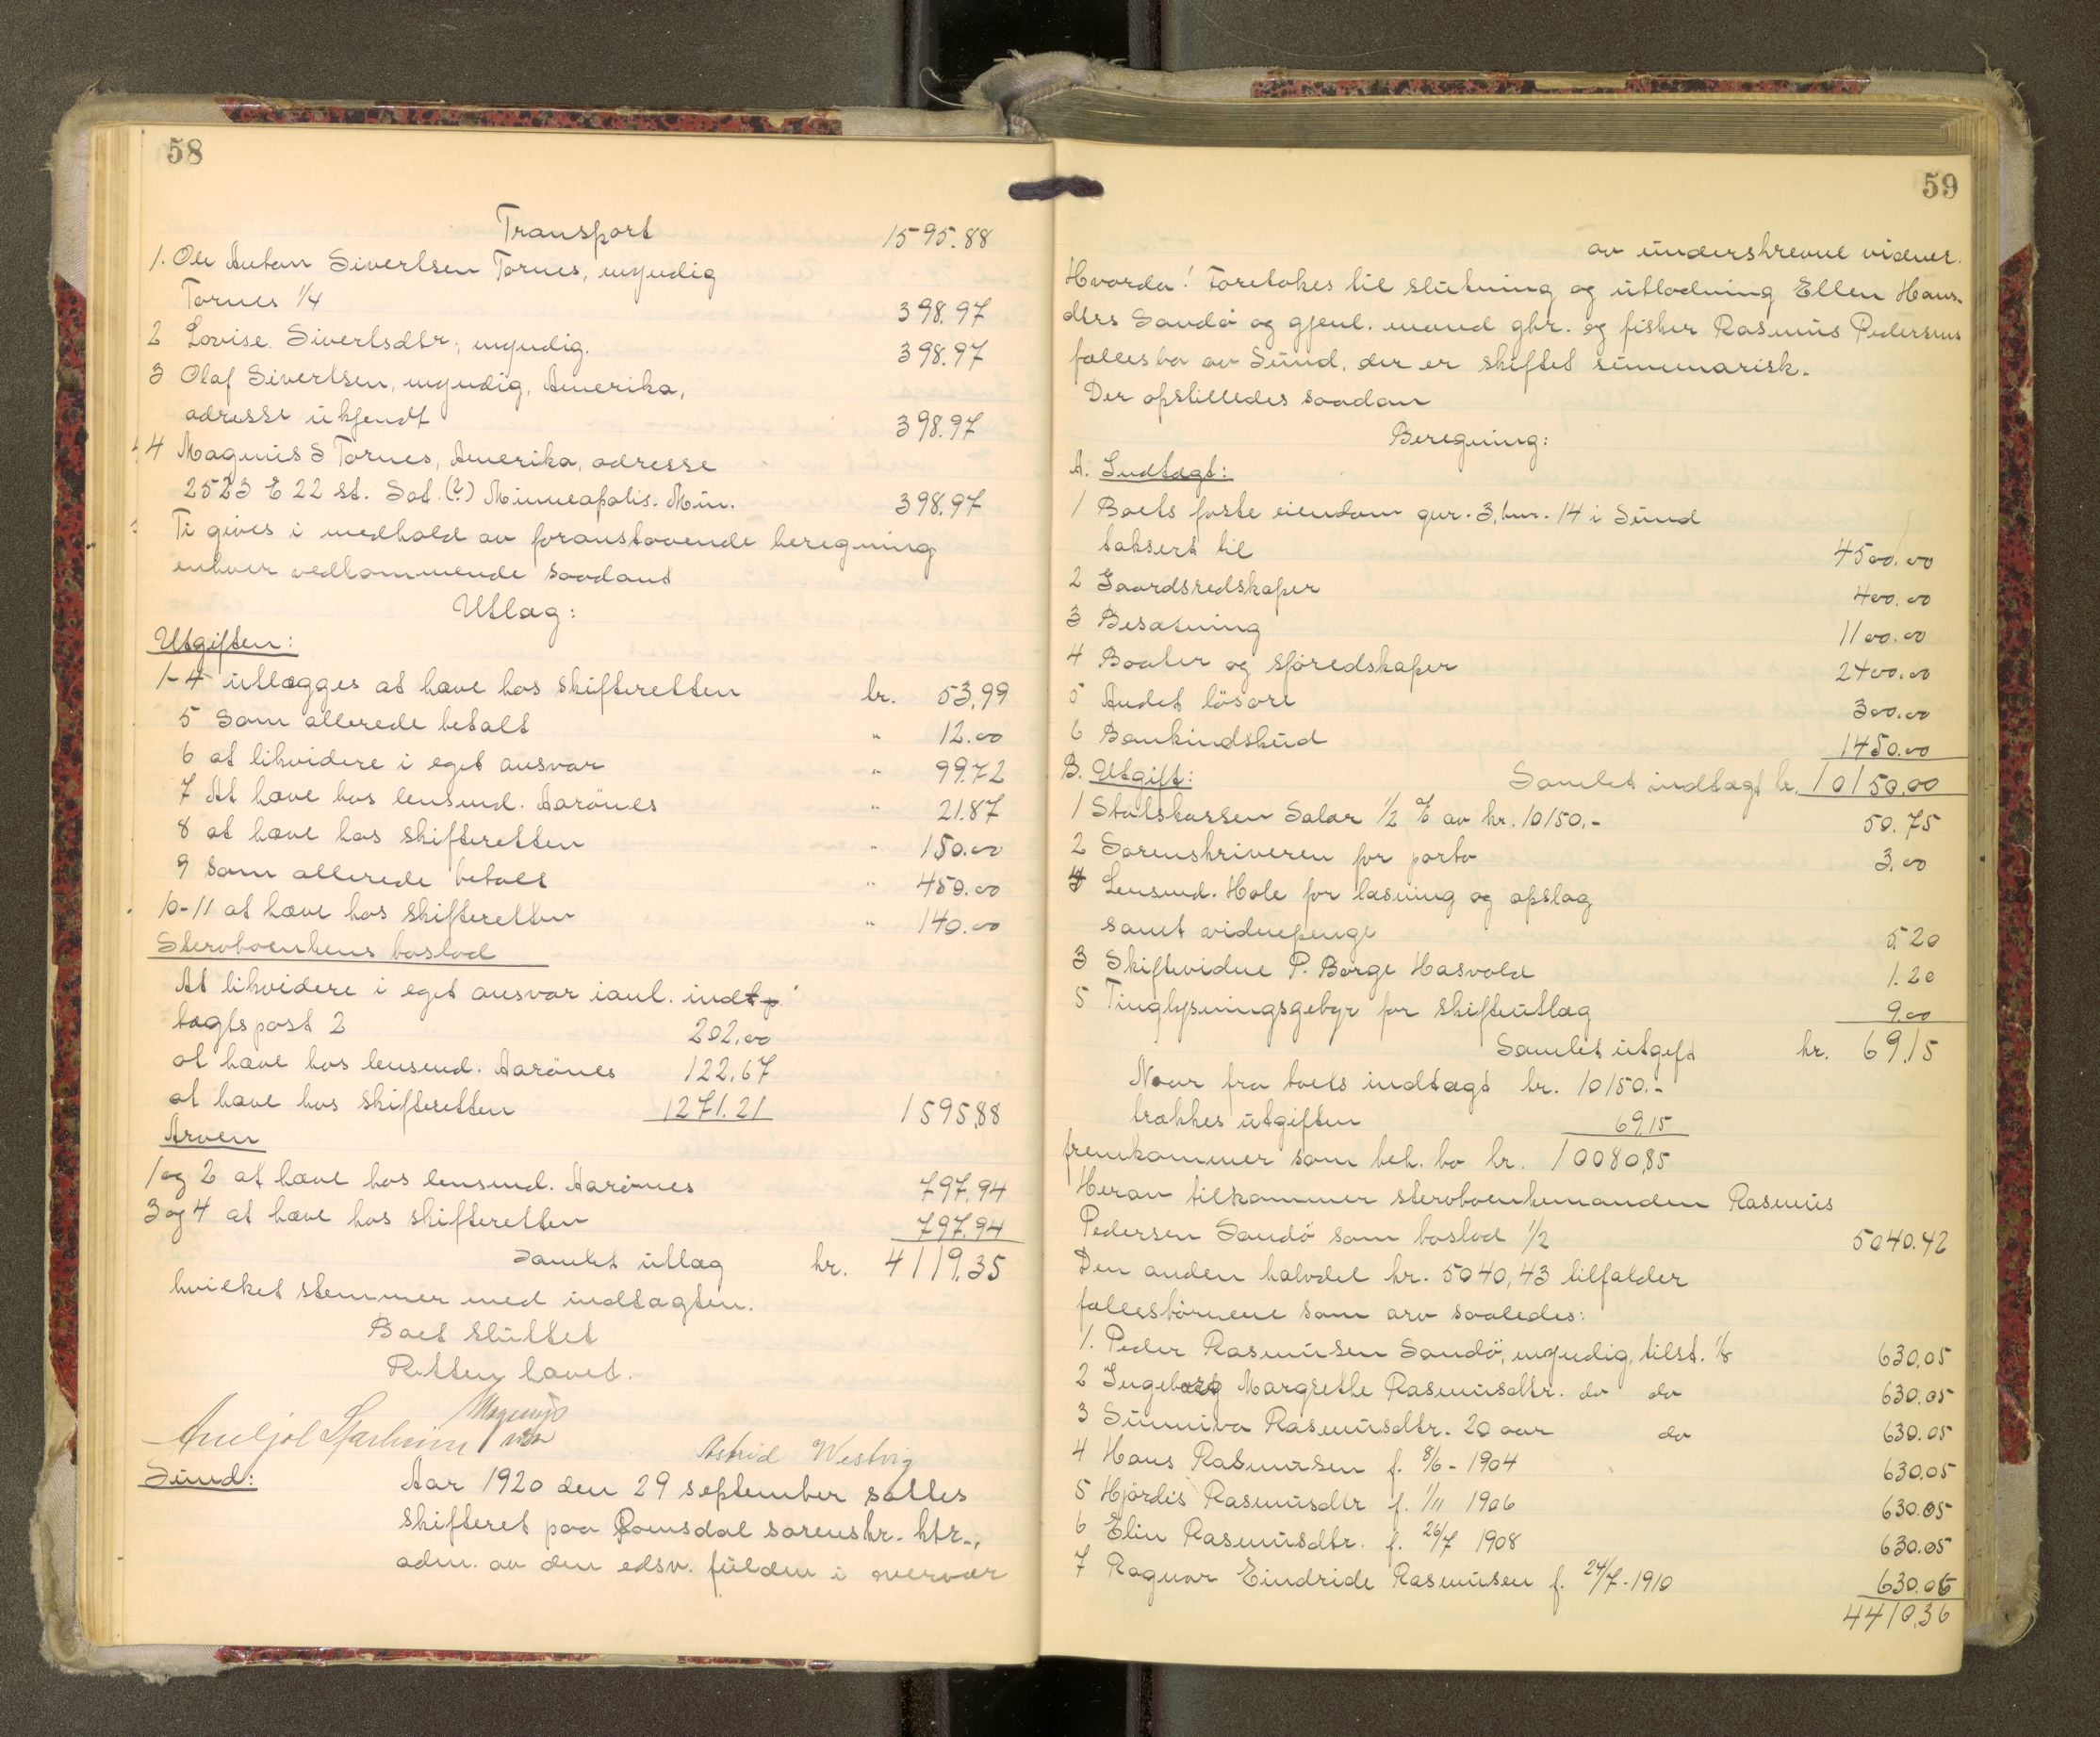 58
Transport 1595.88
1. Ole Anton Sivertsen Tornes, myndig
Tornes 1/4 398.97
2 Lovise Sivertsdtr; myndig. 398.97
3 Olaf Sivertsen, myndig, Amerika,
adresse ukjendt 398.97
4 Magnus S Tornes, Amerika, adresse
2523 E 22 st. Sot. (?) Minneapolis. Min. 398.97
Ti gives i medhold av foranstaaende beregning
enhver vedkommende saadant
Utlæg:
Utgiften:
1-4 utlægges at hæve hos skifteretten kr. 53,99
5 Som allerede betalt " 12.00
6 at likvidere i eget ansvar " 99.72
7 At hæve hos lensmd. Aarönes " 21.87
8 at hæve hos skifteretten " 150.00
9 Som allerede betalt " 450.00
10-11 at hæve hos skifteretten " 140.00
Stervboenkens boslod
At likvidere i eget ansvar ianl. indt
tægtspost 2 202.00
at hæve hos lensmd. Aarönes 122,67
at hæve hos skifteretten 1271.21 1595,88
Arven
1 og 2 at hæve hos lensmd. Aarönes 797,94
3 og 4 at hæve hos skifteretten 797,94
Samlet utlæg kr. 4119,35
hvilket stemmer med indtægten.
Boet sluttet
Retten hævet.
Astrid Westvig
Sund: Aar 1920 den 29 september sattes
skifteret paa Romsdal sorenskr. ktr.,
adm. av den edsv. fuldm i nærvær
59
av underskrevne vidner.
Hvorda! Foretokes til slutning og utlodning Ellen Hans-
dtrs Sandö og gjenl. mand gbr. og fisker Rasmus Pedersens
fællesbo av Sund, der er skiftet summarisk.
Der opstilledes saadan
Beregning:
A. Indtægt:
1 Boets faste eiendom gnr. 3, bnr. 14 i Sund
taksert til 4500.00
2 Gaardsredskaper 400.00
3 Besætning 1100.00
4 Baater og sjöredskaper 2400.00
5 Andet lösöre 300.00
6 Bankindskud 1450.00
B. Utgift: Samlet indtægt kr. 10150.00
1 Statskassen Salær 1/2 % av kr. 10150.- 50.75
2 Sorenskriveren for porto 3.00
4 Lensmd. Hole for læsning og opslag
samt vidnepenge 5.20
3 Skiftevidne P. Borge Hasvold 1.20
5 Tinglysningsgebyr for skifteutlæg 9.00
Samlet utgift kr. 69,15
Naar fra boets indtægt kr. 10150.-
trækkes utgiften 69,15
fremkommer som beh. bo kr. 10080,85
Herav tilkommer stervboenkemanden Rasmus
Pedersen Sandö som boslod 1/2 5040.42
Den anden halvdel kr. 5040,43 tilfalder
fællesbörnene som arv saaledes:
1. Peder Rasmussen Sandö, myndig, tilst. 1/8 630,05
2 Ingeborg Margrethe Rasmusdtr. do do 630.05
3 Sunniva Rasmusdtr. 20 aar do 630.05
4 Hans Rasmussen f. 8/6 - 1904 630.05
5 Hjördis Rasmusdtr f. 1/11 1906 630.05
6 Elin Rasmusdtr. f. 26/7 1908 630.05
7 Ragnar Eindride Rasmussen f. 24/7. 1910 630.06
4410,36